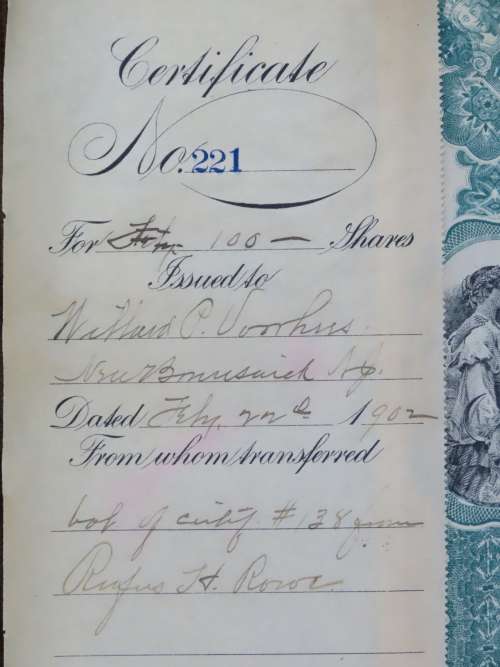 Certificate
No. 221
For 100 — Shares
Issued to
Willard P. Voorhees
New Brunswick N.J.
Dated Feby. 22d 1902
From whom transferred
bal of certif. #138 from
Rufus H. Rowe